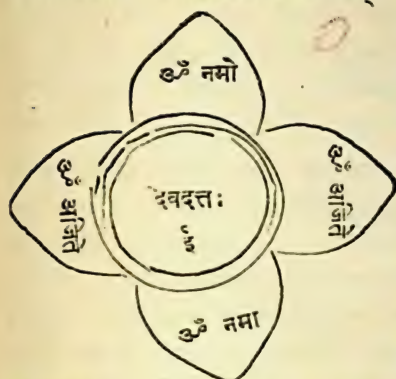 ॐ नमो
ॐ अजिते
देवदत्तः
ई
ॐ अजिते
ॐ नमा